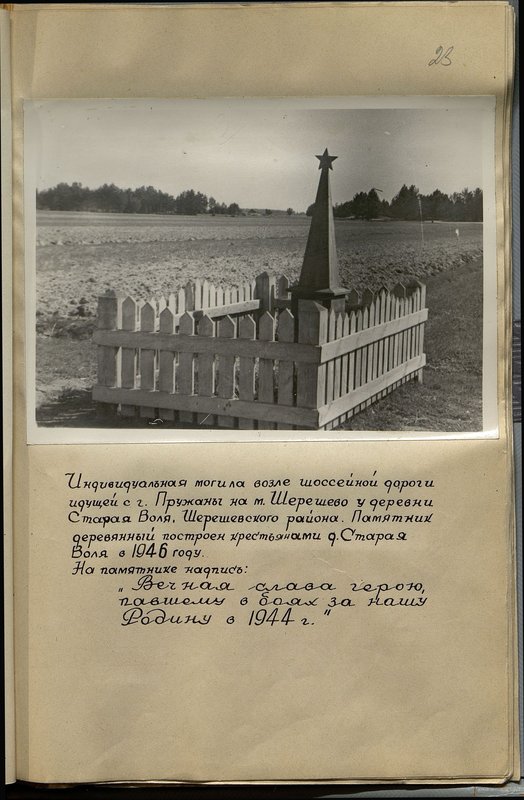 23
Индивидуальная могила возле шоссейной дороги
идущей с г. Пружаны на м. Шерешево у деревни
Старая Воля, Шерешевского района. Памятник
деревянный построен крестьянами д. Старая
Воля в 1946 году.
На памятнике надпись:
„Вечная слава герою,
павшему в боях за нашу
Родину в 1944 г."